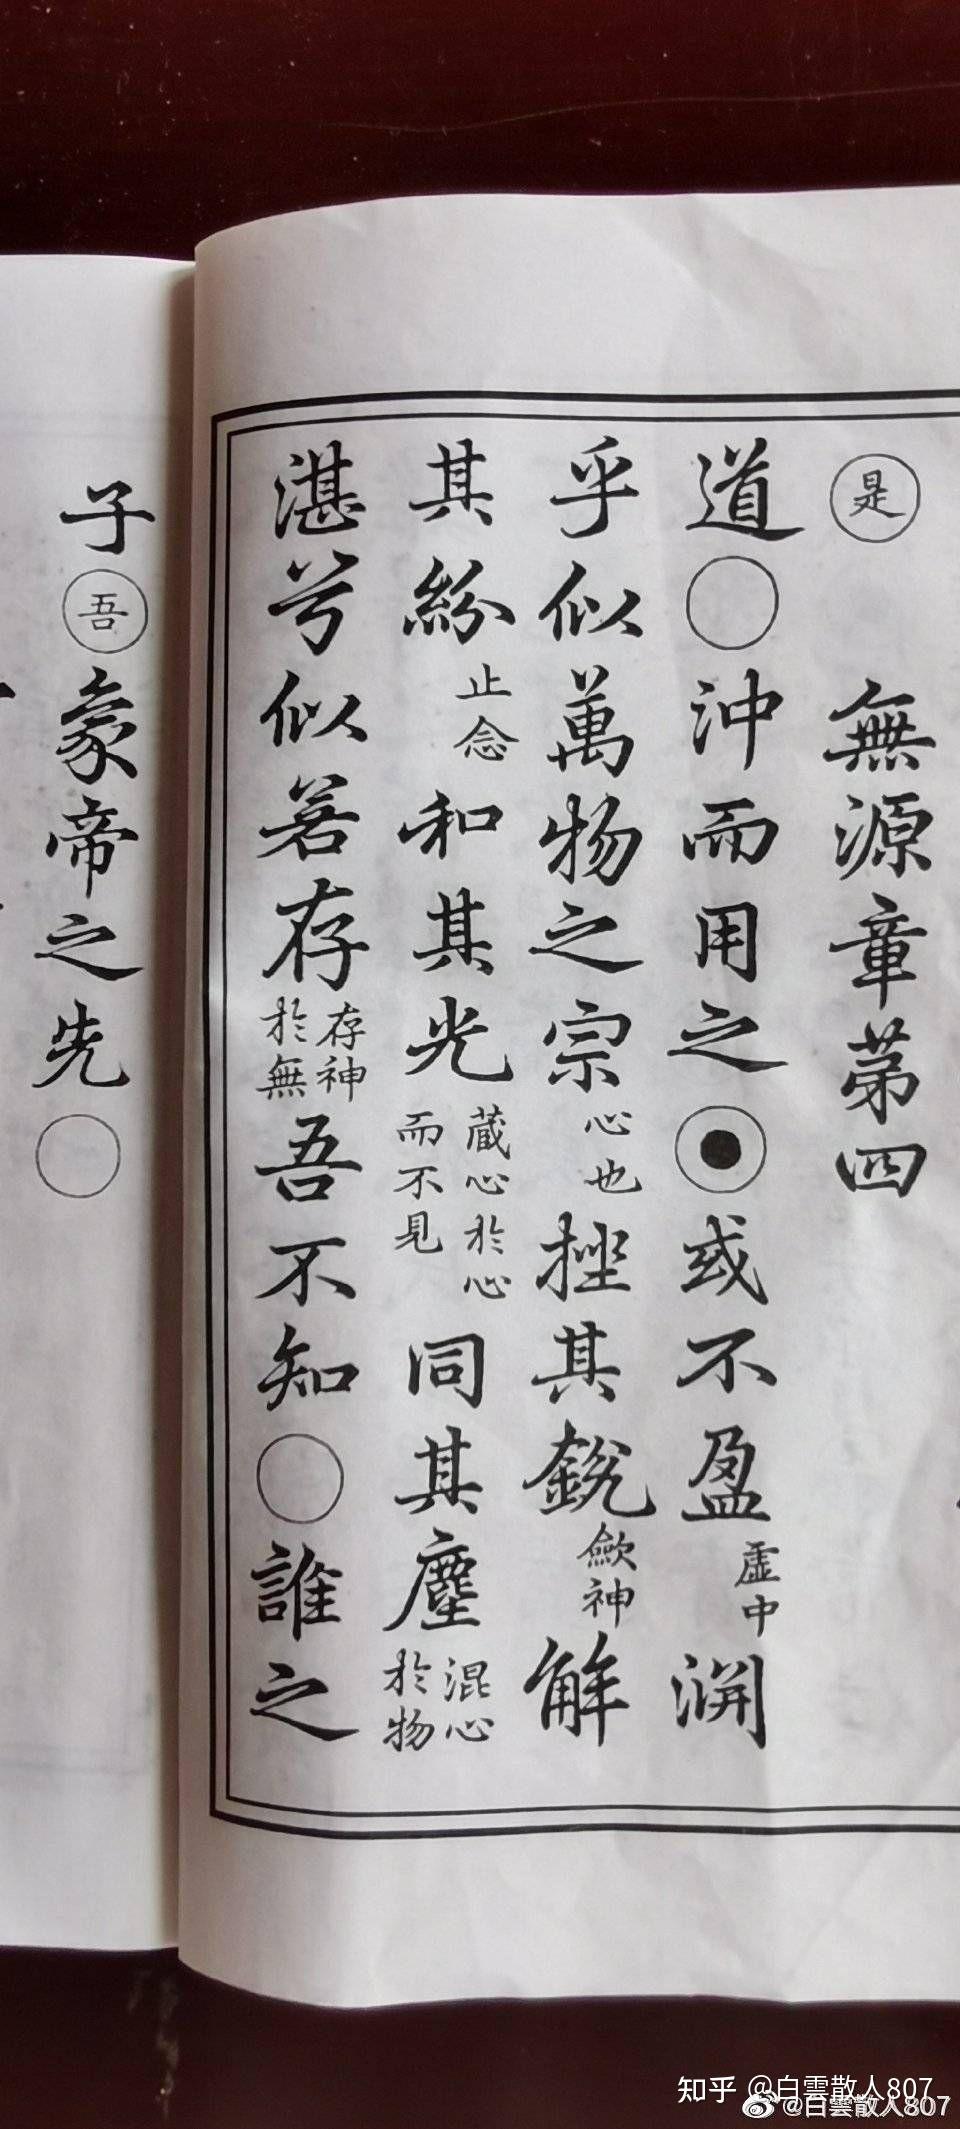 是 無源章第四
道○沖而用之☉或不盈虛中淵
乎似萬物之宗心也挫其銳歛神解
其紛止念和其光藏心於心而不見同其塵混心於物
湛兮似若存存神於無吾不知○誰之
子吾象帝之先○
知乎 @白雲散人807
@白雲散人807